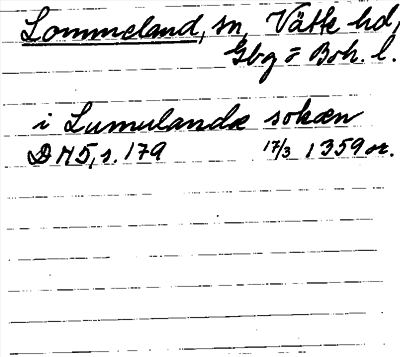 Lommeland, sn, Vätte hd,
Gbg o Boh. l.
i Lumulandæ sokæn
DN 5, s. 179 17/3 1359 or.